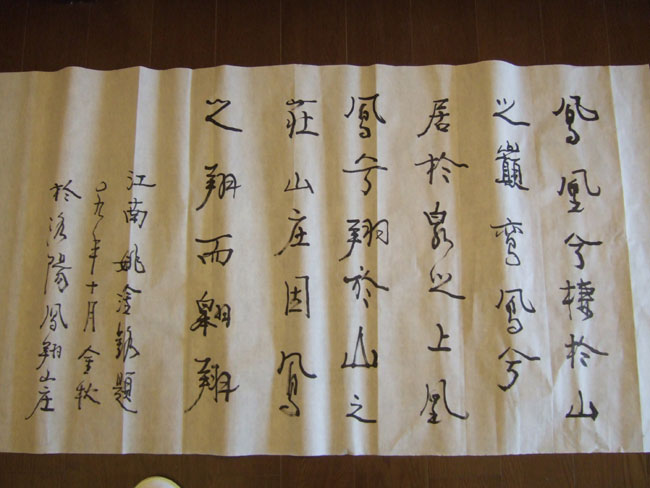 鳳凰兮棲於山
之巔鸾鳳兮
居於泉之上凰
鳳兮翔於山之
莊山庄因鳳
之翔而翱翔
江南姚金題
年十月金秋
於洛陽鳳翔山庄